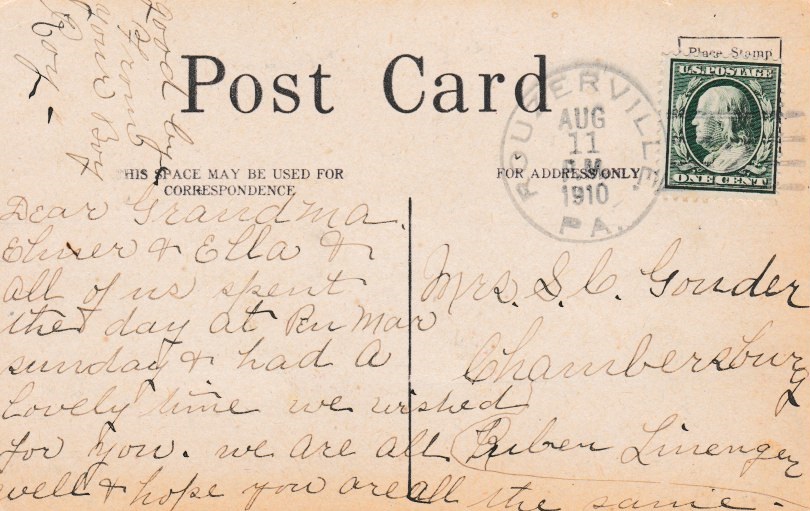 Post Card
Place Stamp
U.S. POSTAGE
ONE CENT
ROUZERVILLE
AUG
11
P.M.
1910
PA.
HIS SPACE MAY BE USED FOR
CORRESPONDENCE
FOR ADDRESS ONLY
Dear Grandma.
Elmer & Ella &
all of us spent
the day at Pen Mar
sunday & had a
lovely time we wished
for you. we are all
well & hope you are all the same.
good by
From
your Boy
Roy
Mrs. S. C. Gonder
Chambersburg
Ruben Linenger